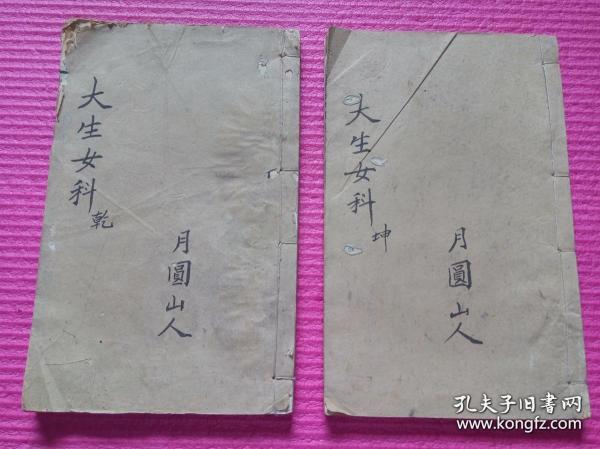 大生女科
乾
月圓山人
大生女科
坤
月圓山人
孔夫子旧書网
www.kongfz.com